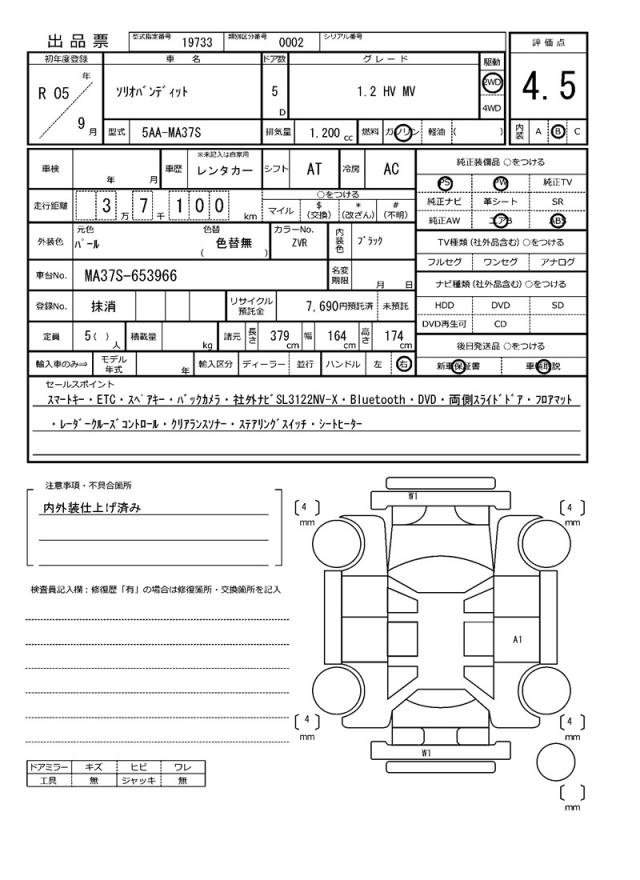 出品票 型式指定番号 19733 類別区分番号 0002 シリアル番号
評価点
4.5
内装 A B C
初年度登録 車名 ドア数 グレード 駆動
R 05 年 9 月
ソリオバンディット 5 D 1.2 HV MV 2WD 4WD
型式 5AA-MA37S 排気量 1.200 cc 燃料 ガソリン 軽油 ( )
車検 年 月 車歴 ※未記入は自家用 レンタカー シフト AT 冷房 AC
走行距離 3 万 7 千 1 0 0 km ○をつける
マイル $ (交換) * (改ざん) # (不明)
外装色 元色 パール 色替 色替無 ( ) カラーNo. ZVR 内装色 ブラック
車台No. MA37S-653966 名変期限 月 日
登録No. 抹消 リサイクル預託金 7,690円預託済 未預託
定員 5( ) 人 積載量 kg 諸元 長さ 379 cm 幅 164 cm 高さ 174 cm
輸入車のみ⇒ モデル年式 年 輸入区分 ディーラー 並行 ハンドル 左 右
純正装備品 ○をつける
PS PW 純正TV
純正ナビ 革シート SR
純正AW エアB ABS
TV種類 (社外品含む) ○をつける
フルセグ ワンセグ アナログ
ナビ種類 (社外品含む) ○をつける
HDD DVD SD
DVD再生可 CD
後日発送品 ○をつける
新車保証書 車輌取説
セールスポイント
スマートキー・ETC・スペアキー・バックカメラ・社外ナビSL3122NV-X・Bluetooth・DVD・両側スライドドア・フロアマット
・レーダークルーズコントロール・クリアランスソナー・ステアリングスイッチ・シートヒーター
注意事項・不具合箇所
内外装仕上げ済み
検査員記入欄：修復歴「有」の場合は修復箇所・交換箇所を記入
W1
[ 4 ] mm
[ 4 ] mm
A1
[ 4 ] mm
[ 4 ] mm
W1
[ ] mm
ドアミラー キズ ヒビ ワレ
工具 無 ジャッキ 無